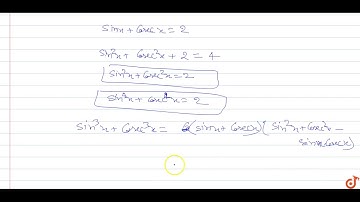 sinx + Cosecx = 2
sin²x + Cosec²x + 2 = 4
sin²x + Cosec²x = 2
sin⁴x + Cosec⁴x = 2
sin³x + Cosec³x = (sinx + Cosecx) (sin²x + Cosec²x -
sinx Cosecx)